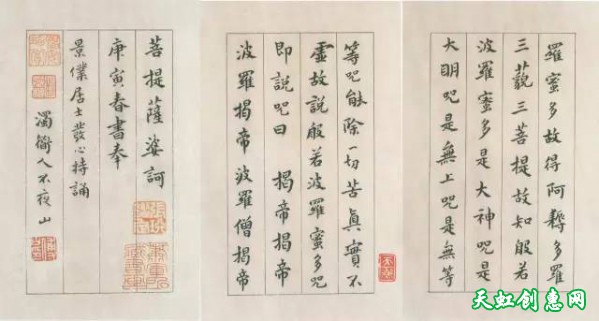 羅蜜多故得阿耨多羅
三藐三菩提故知般若
波羅蜜多是大神咒是
大明咒是無上咒是無等
等咒能除一切苦眞實不
虛故說般若波羅蜜多咒
即說咒曰 揭帝揭帝
波羅揭帝波羅僧揭帝
菩提薩婆訶
庚寅春書奉
景僕居士發心持誦
人不夜山
天虹创意网